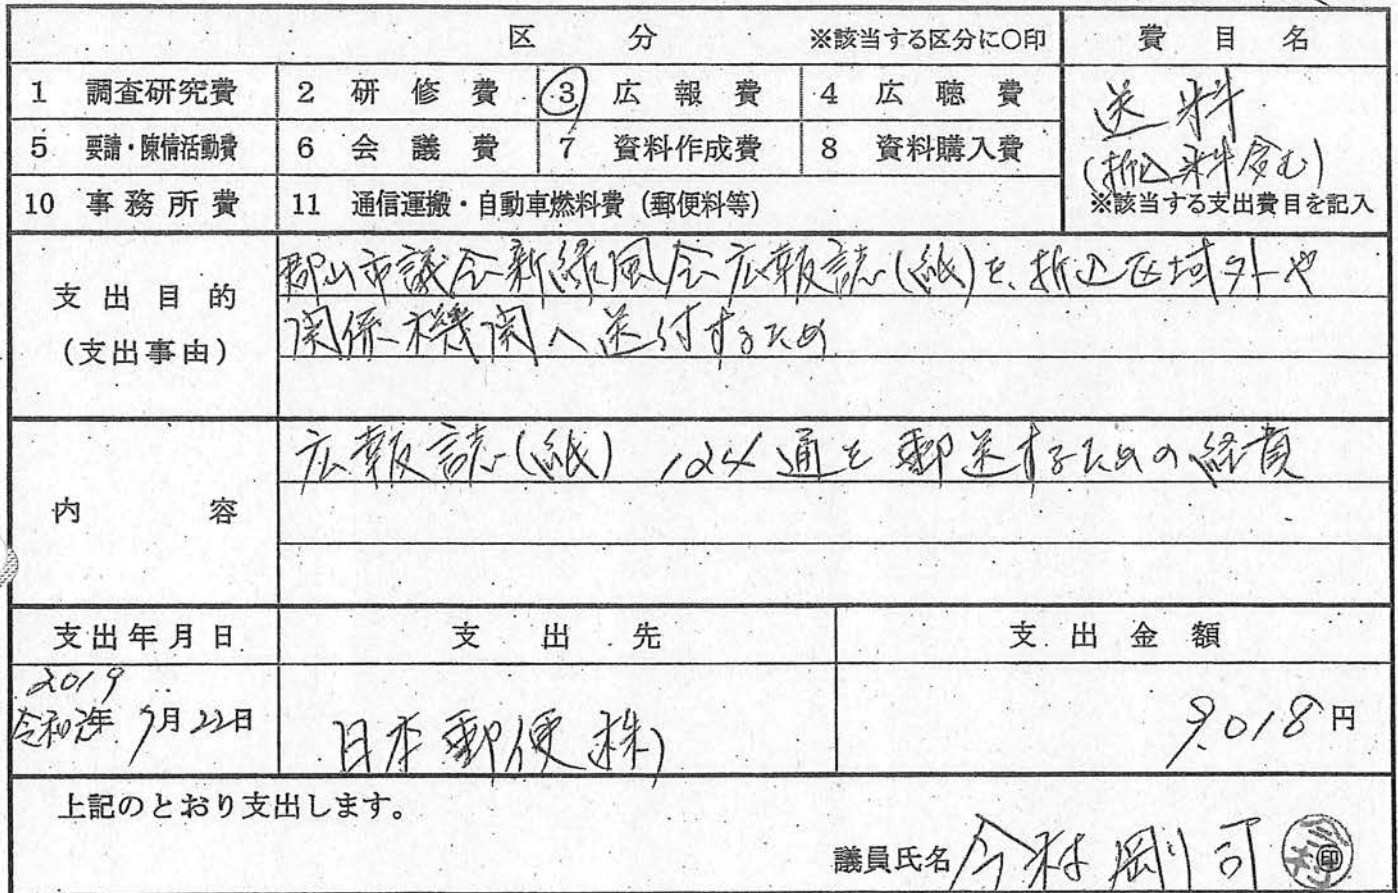 区 分 ※該当する区分に○印 費 目 名
1 調査研究費 2 研 修 費 ③ 広 報 費 4 広 聴 費
送料
5 要請・陳情活動費 6 会 議 費 7 資料作成費 8 資料購入費
(折込料含む)
10 事 務 所 費 11 通信運搬・自動車燃料費(郵便料等)
※該当する支出費目を記入
支 出 目 的
(支出事由)
郡山市議会新緑風会広報誌(紙)を、折込区域外や
関係機関へ送付するため
内 容
広報誌(紙) 124通を郵送するための経費
支出年月日 支 出 先 支 出 金 額
2019
令和元年 9月22日 日本郵便(株) 9,018円
上記のとおり支出します。
議員氏名 今村剛司 印